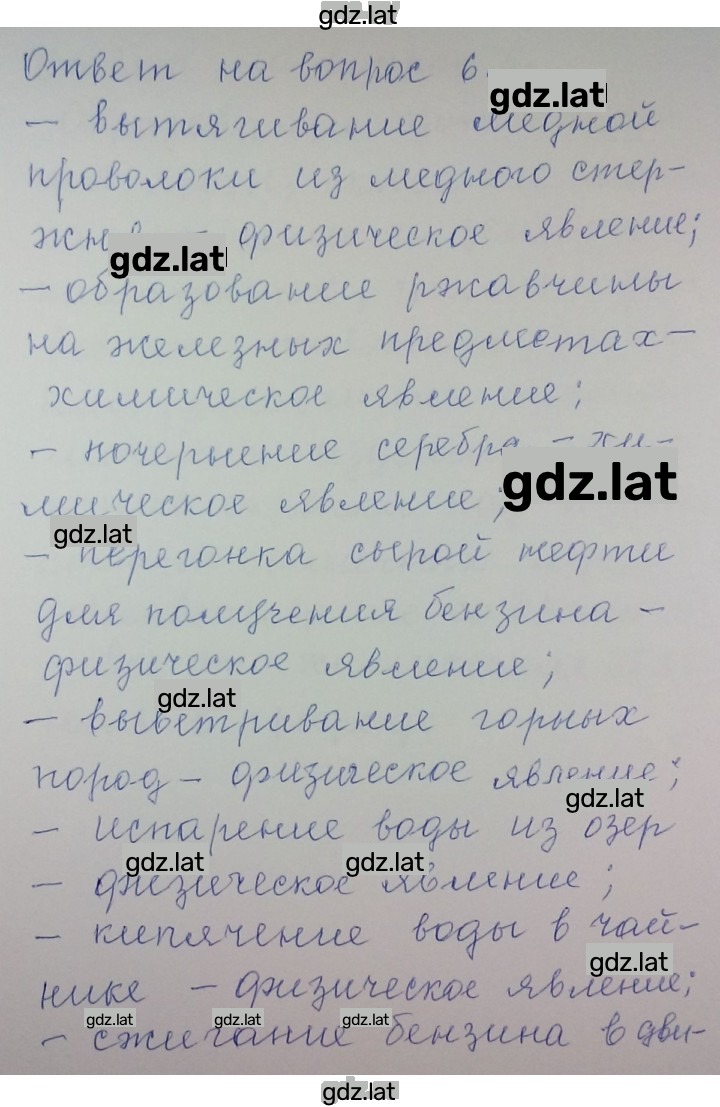 gdz.lat
Ответ на вопрос 6.
gdz.lat
– вытягивание медной
проволоки из медного стер-
– физическое явление;
gdz.lat
– образование ржавчины
на железных предметах –
химическое явление;
– почернение серебра – хи-
мическое явление;
gdz.lat
gdz.lat
– перегонка сырой нефти
для получения бензина –
физическое явление;
gdz.lat
– выветривание горных
пород – физическое явление;
gdz.lat
– испарение воды из озер
gdz.lat gdz.lat
– физическое явление;
– кипячение воды в чай-
gdz.lat
нике – физическое явление;
gdz.lat gdz.lat gdz.lat
– сжигание бензина в дви-
gdz.lat